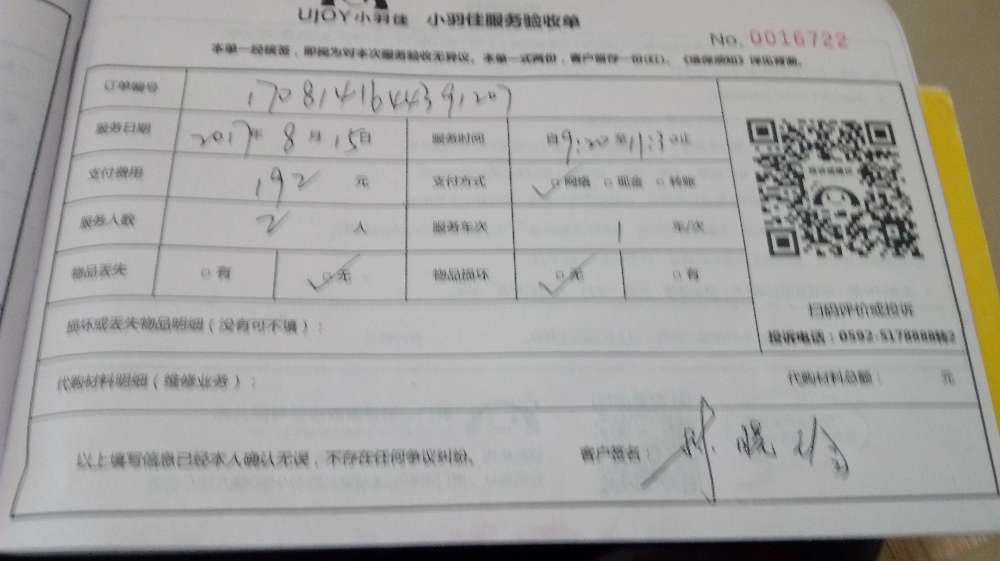 UJOY小羽佳 小羽佳服务验收单
No. 0016722
本单一经核签，即视为对本次服务验收无异议。本单一式两份，客户留存一份(红)。《维修须知》详见背面。
订单编号 170814164439207
服务日期 2017年 8 月 15日 服务时间 自9:20至11:30止
支付费用 192 元 支付方式 ☑网络 □现金 □转账
服务人数 2 人 服务车次 1 车/次
物品丢失 □有 ☑无 物品损坏 ☑无 □有
扫码评价或投诉
投诉电话：0592-5178888转2
损坏或丢失物品明细（没有可不填）：
代购材料明细（维修业务）： 代购材料总额： 元
以上填写信息已经本人确认无误，不存在任何争议纠纷。 客户签名：